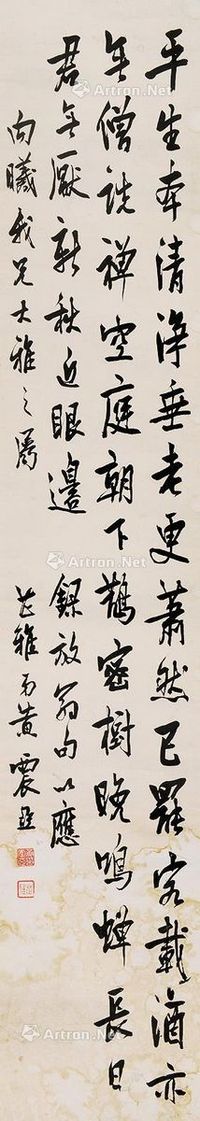 平生本清淨垂老更蕭然已罷客載酒亦
無僧談禪空庭朝下鵲密樹晚鳴蟬長日
君無厭新秋近眼邊 錄放翁句以應
向曦我兄大雅之屬 芷雅弟黃震亞
Artron.Net